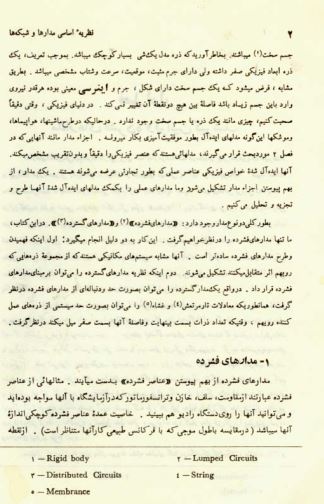 ۲ نظریه اساسی مدارها و شبکه‌ها
جسم سخت(۱) میباشند. بخاطرآوریدکه ذره مدل یک‌شی بسیارکوچک میباشد. بموجب تعریف، یک
ذره ابعاد فیزیکی صفر داشته ولی دارای جرم مثبت، موقعیت، سرعت وشتاب مشخصی میباشد. بطریق
مشابه، فرض میشود کـه یک جسم سخت دارای شکل، جرم و اینرسی معینی بوده هرقدر نیروی
وارد باین جسم زیـاد باشد فاصلهٔ بین هیچ دونقطهٔ آن تغییر نمی‌کند. دردنیای فیزیکی، وقتی دقیقاً
صحبت کنیم، چیزی مانند یک ذره یا جسم سخت وجود ندارد. درحالیکه درطرح‌ماشینها، هواپیماها،
وموشکها این‌گونه مدلهای ایده‌آل بطور موفقیت‌آمیزی بکار میرونـد. اجزاء مدار مانند آنهایی‌که در
فصل ۲ موردبحث قرار می‌گیرند، مدلهائی‌هستندکه عنصر فیزیکی‌را دقیقاً وبدون‌تقریب مشخص‌میکند.
آنها ایده‌آل شدهٔ خواص فیزیکی عناصر عملی‌که بطور تجارتی عرضه می‌شوند هستند. یک مدار، از
بهم پیوستن اجزاء مدار تشکیل می‌شود وما مدارهای عملی را بکمک مدلهای ایده‌آل شدهٔ آنهـا طرح و
تجزیه و تحلیل می‌کنیم.
بطورکلی‌دونوع‌مدار‌وجود دارد: «مدارهای‌فشرده»(۲) و«مدارهای‌گسترده(۳)». دراین‌کتاب،
ما تنها مدارهای‌فشرده را درنظرخواهیم‌گرفت. این‌کار به دو دلیل انجام میگیرد: اول اینکه فهمیدن
وطرح مدارهای فشرده ساده‌تر است. آنها مشابه سیستم‌های مکانیکی هستندکه از مجموعهٔ ذره‌هایی که
رویهم اثر متقابل‌میکنند تشکیل می‌شوند. دوم اینکه نظریه مدارهای گسترده را می‌توان برمبنای‌مدارهای
فشرده قرار داد. درواقع یک‌مدارگسترده را می‌توان بصورت حد ودنباله‌ای از مدارهای فشرده درنظر
گرفت، همانطوریکه معادلات تارمرتعش(٤) و غشاء(٥) را می‌توان بصورت حد سیستمی از ذره‌های عمل
کننده رویهم، وقتیکه تعداد ذرات بسمت بینهایت وفاصلهٔ آنها بسمت صفر میل میکند درنظرگرفت.
۱- مدارهای فشرده
مدارهای فشرده از بهم پیوستن «عناصر فشرده» بـدست میآیند. مثالهائی از عناصر
فشرده عبارتند ازمقاومت، سلف، خازن وترانسفورماتورکه‌درآزمایشگاه با آنها مواجه بوده‌اید
و می‌توانید آنها را روی‌دستگاه رادیو هم ببینید. خاصیت عمدهٔ عناصر فشرده‌کوچکی‌اندازهٔ
آنها میباشد (درمقایسه باطول موجی که با فرکانس طبیعی کارآنها متناظر است). ازنقطه
۱ — Rigid body ۲ — Lumped Circuits
۳ — Distributed Circuits ٤ — String
٥ — Membrance